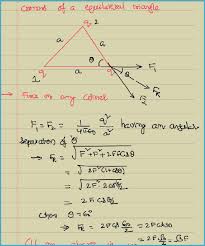 corners of a equilateral triangle
q 2
a a
1 q a q θ F₁
F₂ Fᵣ
→ Force on any corner
F₁ = F₂ = 1/4πε₀ q²/a² having an angular
separation of θ
⇒ Fᵣ = √F² + F² + 2FFcosθ
= √2F²(1+cosθ)
= √2F² 2cos²θ/2
= 2F cosθ/2
θ = 60°
⇒ Fᵣ = 2F cos 60/2 = 2F cos30
= 2F √3/2 = √3F